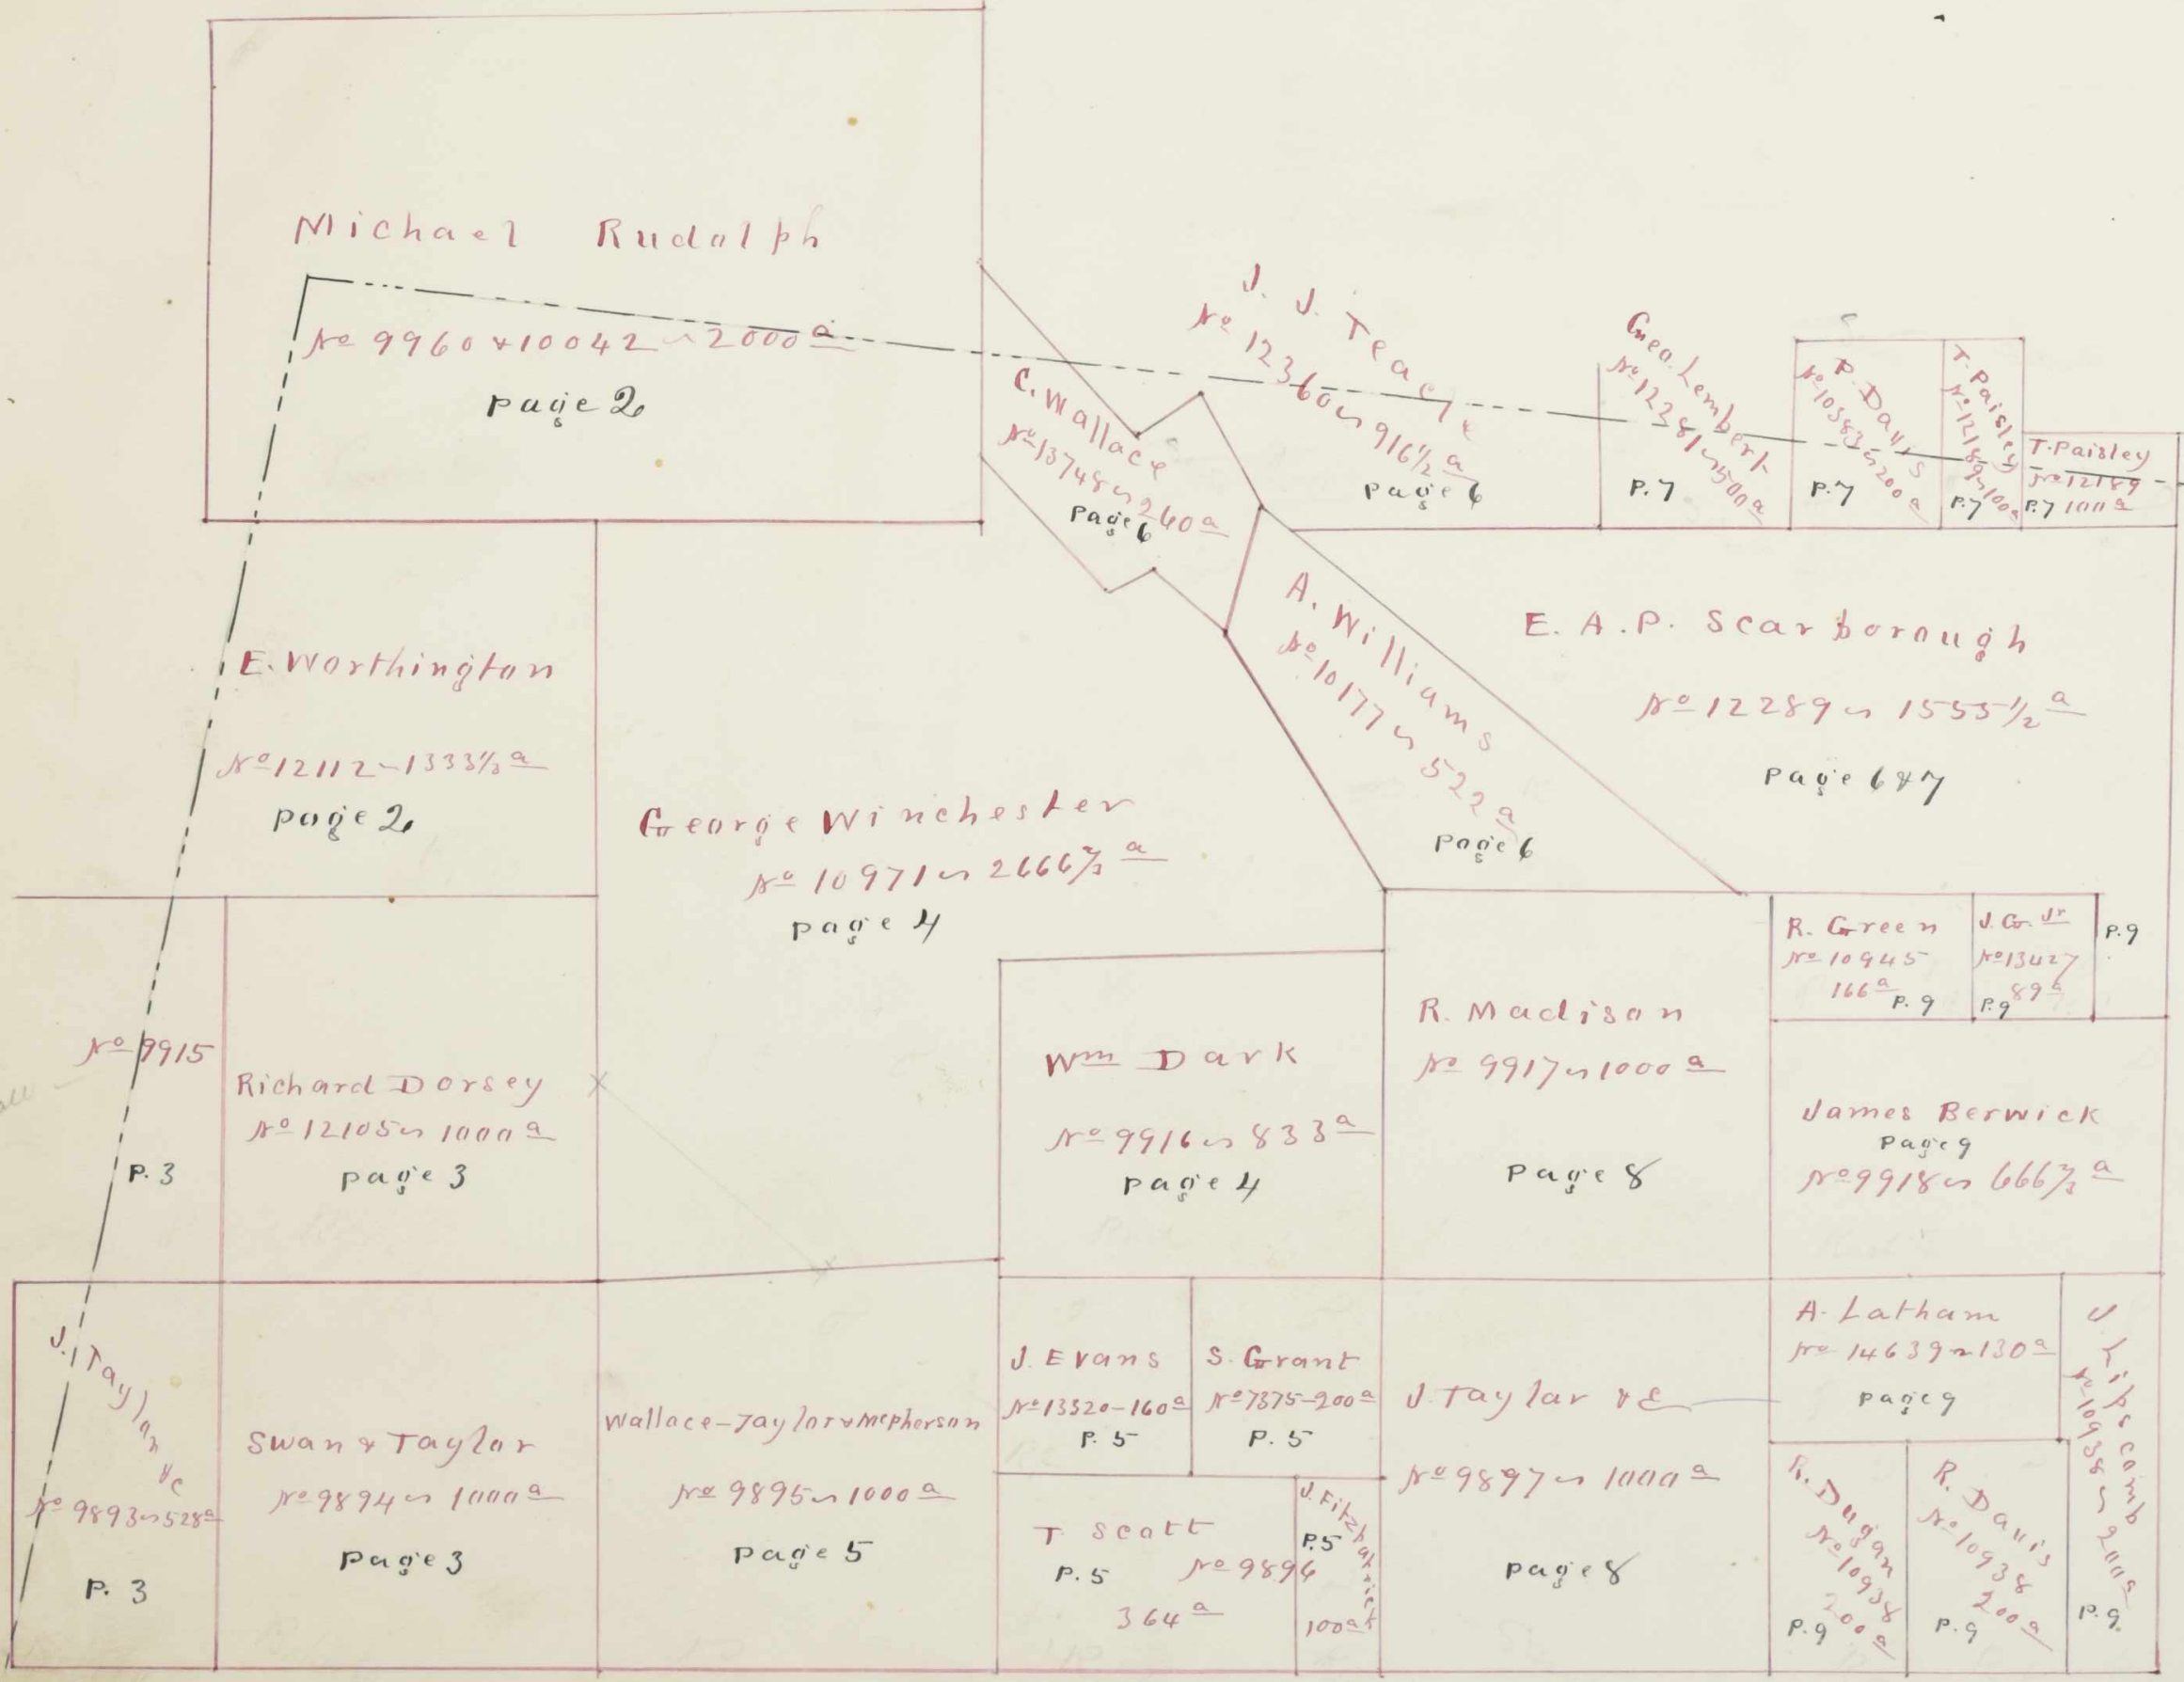 Michael Rudolph
No 9960 & 10042 ~ 2000 a
page 2
J. J. Teagle
No 12360 ~ 916 1/2 a
page 6
Geo. Lembert
No 12281 ~ 500 a
P. 7
P. Davis
No 10383 ~ 200 a
P. 7
T. Paisley
No 12189 ~ 100 a
P. 7
T. Paisley
No 12189
P. 7 100 a
C. Wallace
No 13748 ~ 240 a
page 6
E. Worthington
No 12112 - 1333 1/3 a
page 2
A. Williams
No 10177 ~ 522 a
page 6
E. A. P. Scarborough
No 12289 ~ 1555 1/2 a
page 6 & 7
George Winchester
No 10971 ~ 2666 2/3 a
page 4
R. Green
No 10945
166 a P. 9
J. G. Jr
No 13427
P. 9 89 a
P. 9
No 9915
P. 3
Richard Dorsey
No 12105 ~ 1000 a
page 3
Wm Dark
No 9916 ~ 833 a
page 4
R. Madison
No 9917 ~ 1000 a
page 8
James Berwick
page 9
No 9918 ~ 666 2/3 a
J. Taylor &c
No 9893 ~ 528 a
P. 3
Swan & Taylor
No 9894 ~ 1000 a
page 3
Wallace-Taylor & McPherson
No 9895 ~ 1000 a
page 5
J. Evans
No 13320 - 160 a
P. 5
S. Grant
No 7375 - 200 a
P. 5
T. Scott
P. 5 No 9896
364 a
J. Fitzpatrick
P. 5
100 a
J. Taylor & E
No 9897 ~ 1000 a
page 8
A. Latham
No 14639 ~ 130 a
page 9
R. Dugan
No 10938
200 a
P. 9
R. Davis
No 10938
200 a
P. 9
J. Lipscomb
No 10938 ~ 200 a
P. 9